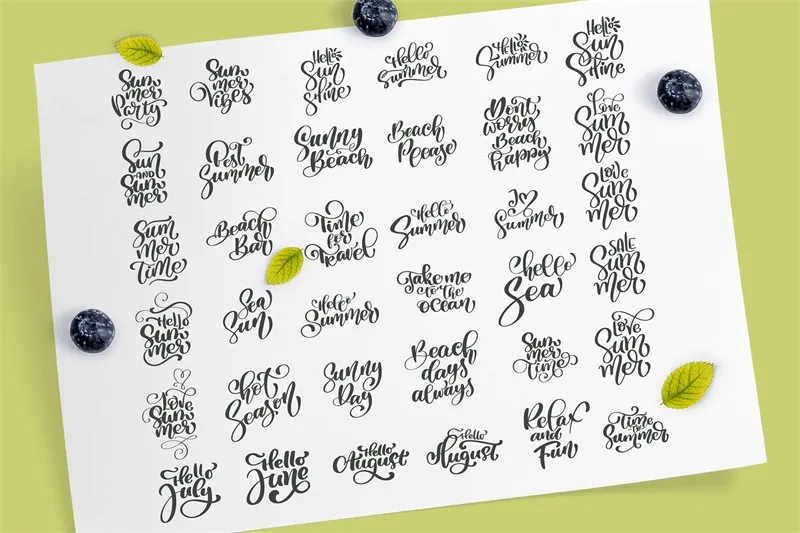 Sum
mer
Party
Sum
mer
Vibes
Hello
Sun
Shine
Hello
Summer
Hello
Summer
Hello
Sun
Shine
Sun
and
Sum
mer
Best
Summer
Sunny
Beach
Beach
Please
Dont
worry
Beach
happy
Love
Sum
mer
Sum
mer
time
Beach
Bar
Time
for
Travel
Hello
Summer
I
Summer
Love
Sum
mer
Hello
Sum
mer
Sea
Sun
Hello
Summer
Take me
to the
ocean
hello
Sea
Sale
Sum
mer
Love
Sum
mer
hot
Season
Sunny
Day
Beach
days
always
Sum
mer
time
Love
Sum
mer
Hello
July
Hello
June
Hello
August
Hello
August
Relax
and
Fun
Time
for
Summer